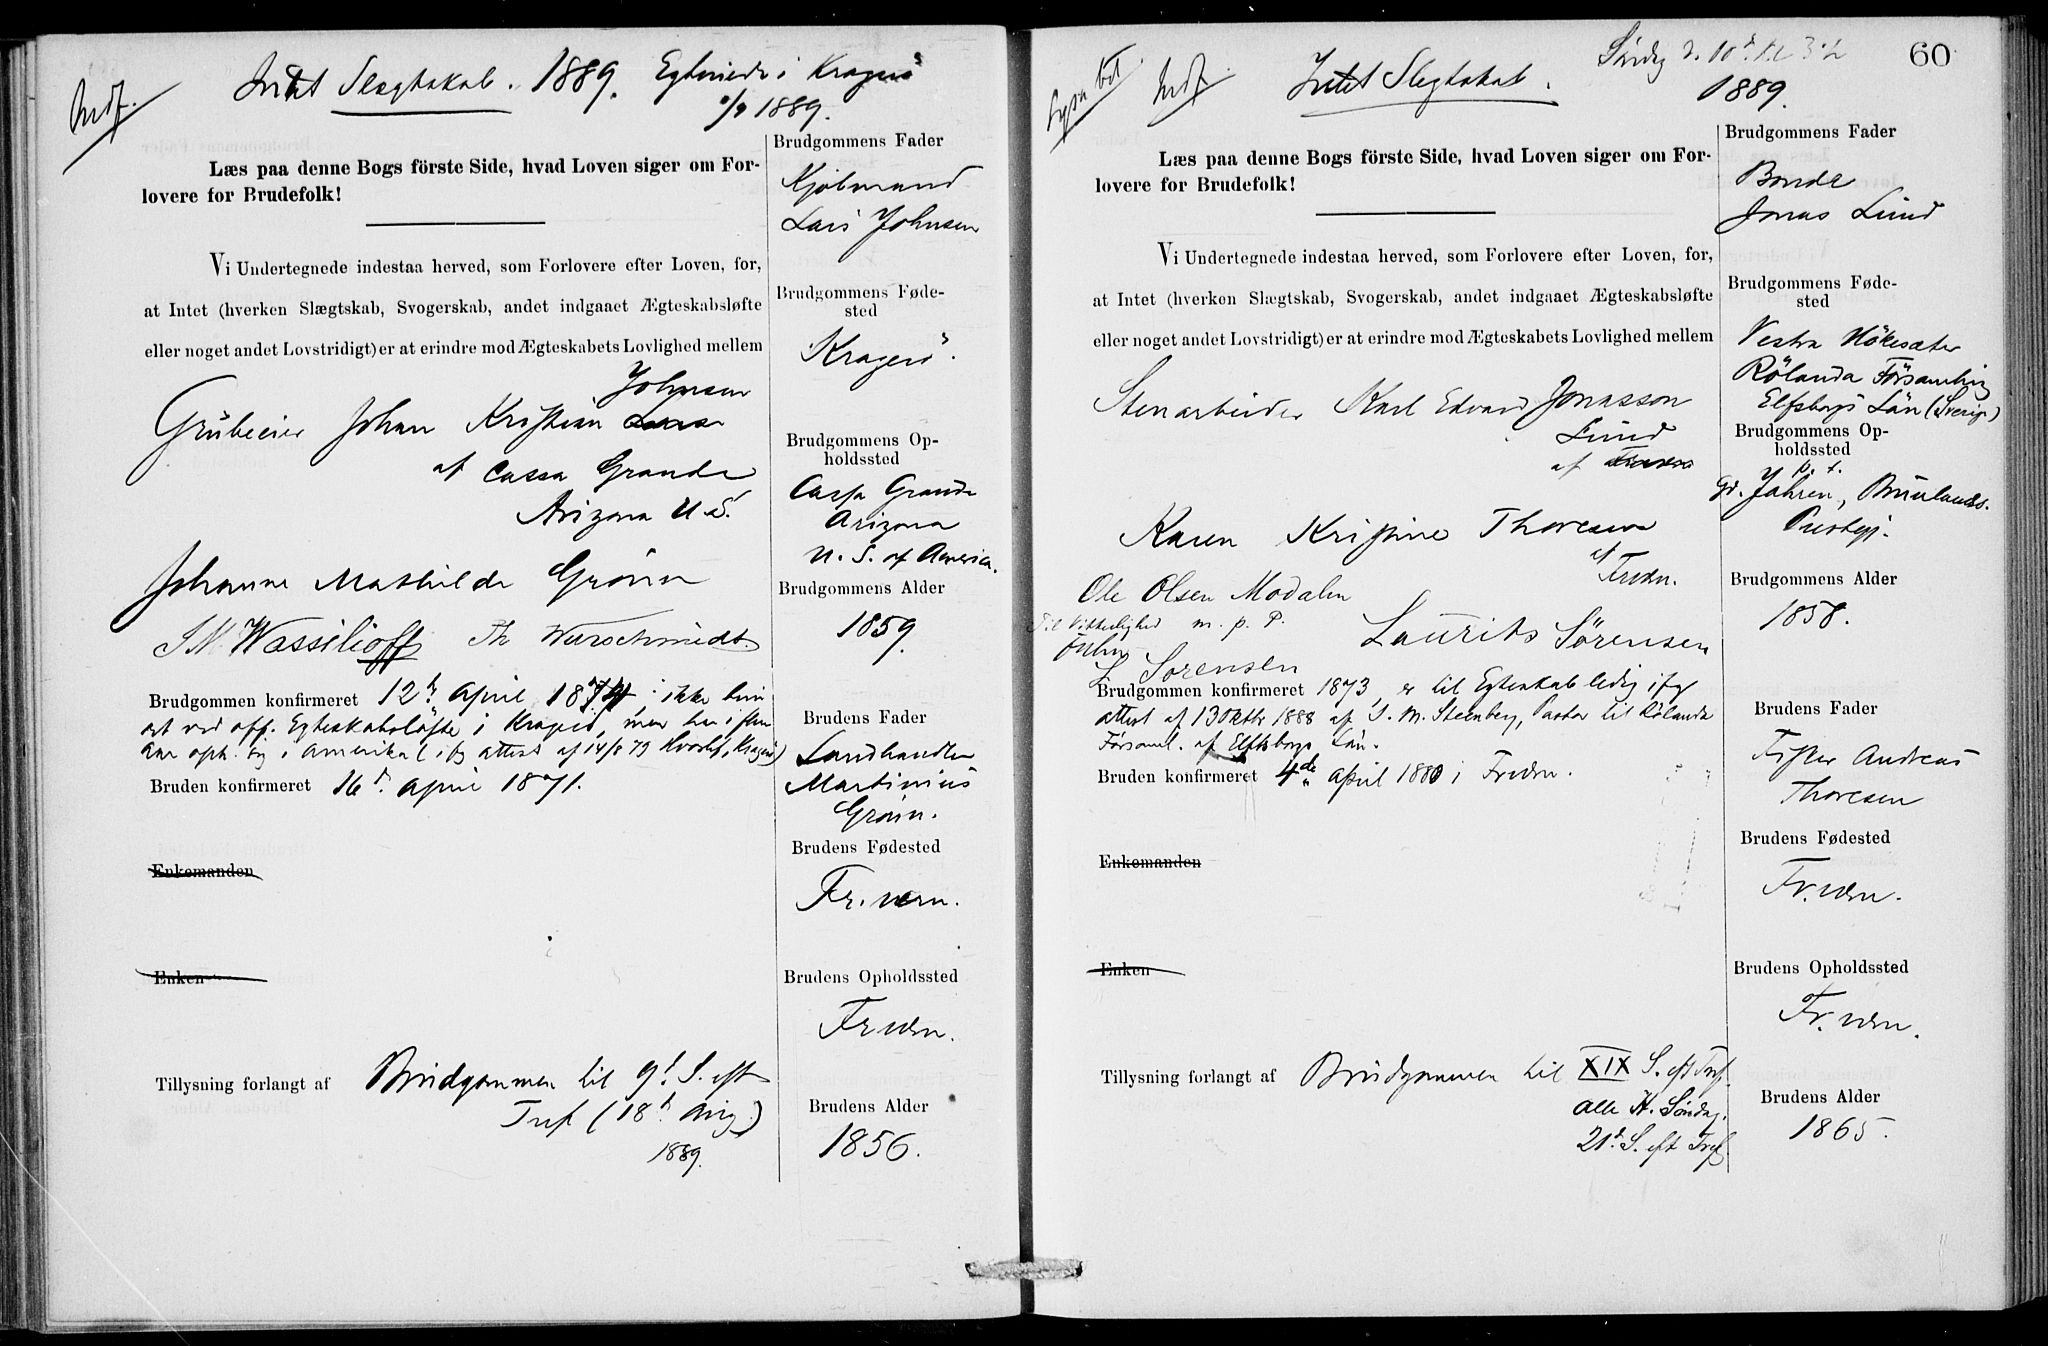 Indf.
Intet Slægtskab. 1889. Egtviede i Kragerø
1889.
Læs paa denne Bogs förste Side, hvad Loven siger om For-
lovere for Brudefolk!
Vi Undertegnede indestaa herved, som Forlovere efter Loven, for,
at Intet (hverken Slægtskab, Svogerskab, andet indgaaet Ægteskabsløfte
eller noget andet Lovstridigt) er at erindre mod Ægteskabets Lovlighed mellem
Johnsen
Grubeeier Johan Kristian
af Cassa Grande
Arizona U.S.
Johanne Mathilde Grönn
S.N. Wassilioff Th Wurschmidt.
Brudgommen konfirmeret 12te April 1874 ikke
ved off. Egteskabsløfte i Kragerø, men har i flere
Aar oph. sig i Amerika (ifg attest af 14/8 79 Kragerø)
Bruden konfirmeret 16de April 1871.
Enkemanden
Enken
Tillysning forlangt af Brudgommen til 9d. S. eft
Tref (18de Aug.)
1889.
Brudgommens Fader
Kjøbmand
Lars Johnsen
Brudgommens Føde-
sted
Kragerö.
Brudgommens Op-
holdssted
Cassa Grande
Arizona
U. S. of America.
Brudgommens Alder
1859.
Brudens Fader
Landhandler
Martinius
Grönn.
Brudens Fødested
Fr.værn.
Brudens Opholdssted
Fr.værn.
Brudens Alder
1856.
Indf.
Intet Slegtskab.
Søndag d. 10de kl 3 1/2
60
1889.
Læs paa denne Bogs förste Side, hvad Loven siger om For-
lovere for Brudefolk!
Vi Undertegnede indestaa herved, som Forlovere efter Loven, for,
at Intet (hverken Slægtskab, Svogerskab, andet indgaaet Ægteskabsløfte
eller noget andet Lovstridigt) er at erindre mod Ægteskabets Lovlighed mellem
Stenarbeider Karl Edvard Jonasson
Lund
af
Karen Kristine Thoresen
af
Frværn.
Ole Olsen Modalen
Til Vitterlighed m. p. P.
Laurits Sørensen
L Sorensen
Brudgommen konfirmeret 1873, er til Egteskab ledig ifg
attest af 13 Oktbr 1888 af S. M. Steenberg, Pastor til Rølanda
Församl. af Elfsborgs Län.
Bruden konfirmeret 4de April 1880 i Frværn.
Enkemanden
Enken
Tillysning forlangt af Brudgommen til XIX S. eft Tref.
Alle H. Søndag.
21de S. eft Tref
Brudgommens Fader
Bonde
Jonas Lund
Brudgommens Føde-
sted
Vestra Hökesæter
Rölanda Församling
Elfsborgs Län (Sverige)
Brudgommens Op-
holdssted
p. t.
Gd. Jahren, Brunlanæs.
Prestegj.
Brudgommens Alder
1858.
Brudens Fader
Fisker Andreas
Thoresen
Brudens Fødested
Fr.værn.
Brudens Opholdssted
Fr.værn.
Brudens Alder
1865.